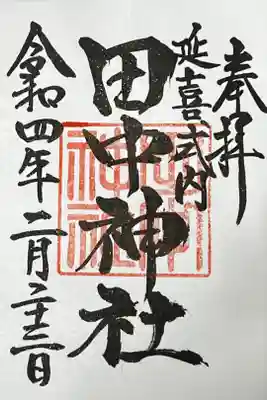 奉拝
延喜式内
田中神社
令和四年二月二十三日